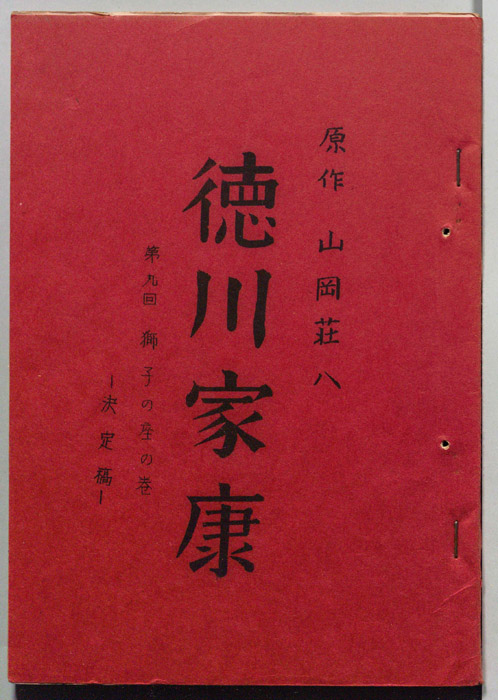 原作 山岡荘八
徳川家康
第九回 獅子の座の巻
―決定稿―